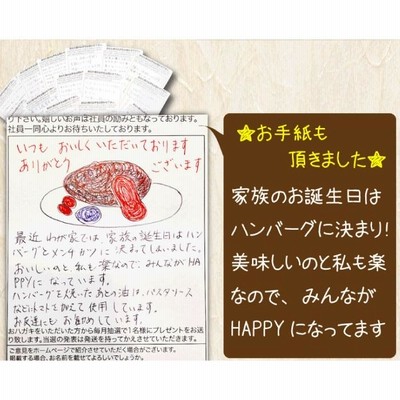 り下さい。嬉しいお声は社員の励みともなっております。
社員一同心よりお待ちいたしております。
いつも おいしく いただいております
ありがとう ございます
最近 わが家では、家族の誕生日はハン
バーグとメンチカツに 決まってしまいました。
おいしいのと、私も楽なので、みんながHA
PPYに なっています。
ハンバーグを焼いたあとの油は、パスタソース
などにトマトと加えて 使用しています。
お友達にも お勧めしています。
おハガキをいただいた方から毎月抽選で1名様にプレゼントをお送
り致します。当選の発表は発送を持ってかえさせていただきます。
ご意見をホームページで紹介させていただく場合がございます。
掲載する場合、お名前を載せてよろしいでしょうか。
★お手紙も
頂きました★
家族のお誕生日は
ハンバーグに決まり!
美味しいのと私も楽
なので、みんなが
HAPPYになってます